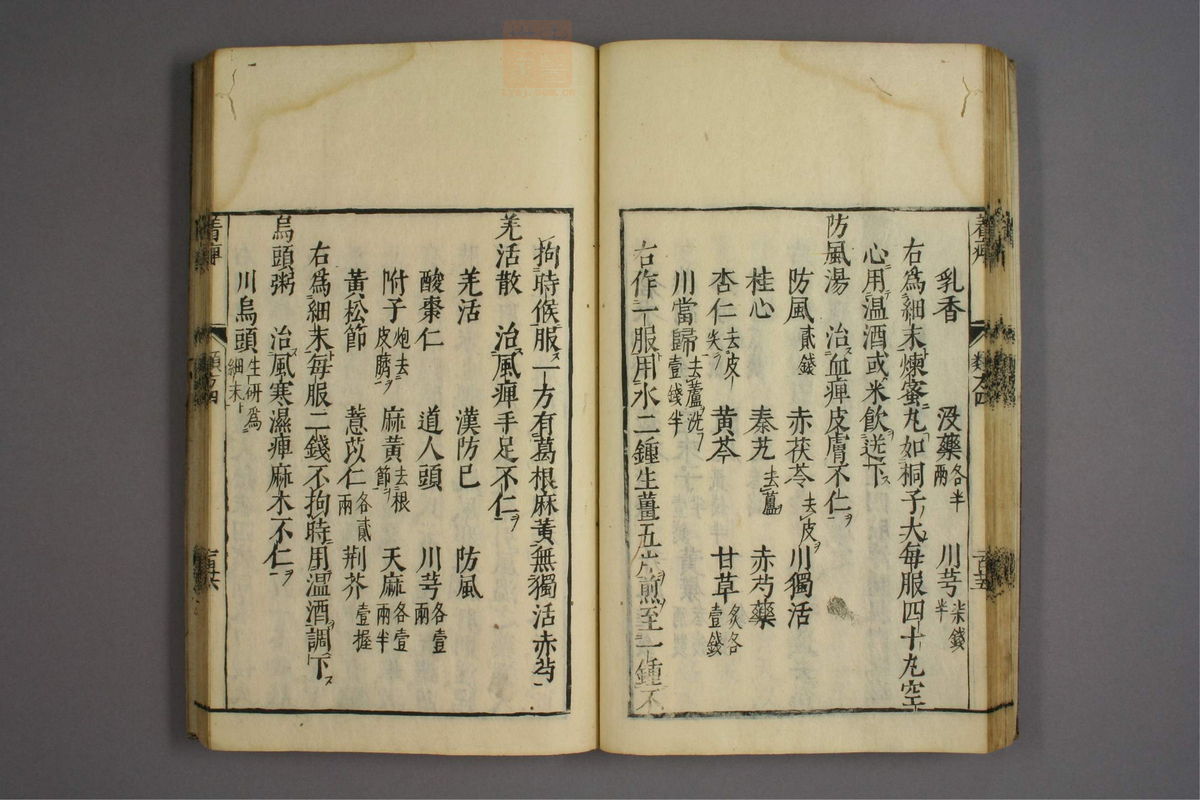 乳香　沒藥各半兩　川芎柒錢半
右爲細末煉蜜丸如桐子大每服四十丸空
心用温酒或米飲送下
防風湯　治血痺皮膚不仁
防風貳錢　赤茯苓去皮　川獨活
桂心　秦艽去蘆　赤芍藥
杏仁去皮尖　黄芩　甘草炙各壹錢
川當歸去蘆洗壹錢半
右作一服用水二鍾生薑五片煎至一鍾不
拘時候服一方有葛根麻黄無獨活赤芍
羌活散　治風痺手足不仁
羌活　漢防巳　防風
酸棗仁　道人頭　川芎各壹兩
附子炮去皮臍　麻黄去根節　天麻各壹兩半
黄松節　薏苡仁各貳兩　荆芥壹握
右爲細末每服二錢不拘時用温酒調下
烏頭粥　治風寒濕痺麻木不仁
川烏頭生研爲細末